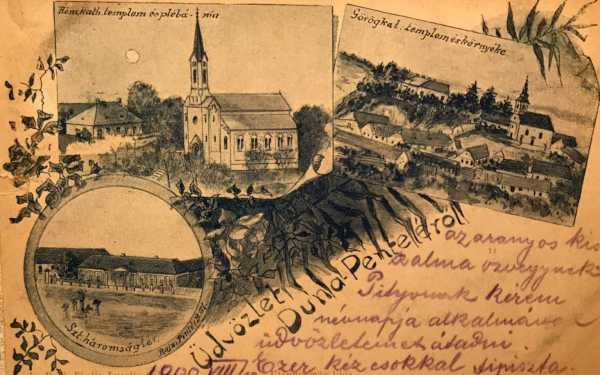 Róm. kath. templom és plébá-nia
Görögkel. templom és környéke
Szt. háromságtér.
Üdvözlet
Duna-Penteléről
az aranyos kis
özvegynek
kérem
névnapja alkalmával
üdvözletemet átadni.
Ezer kézcsókkal